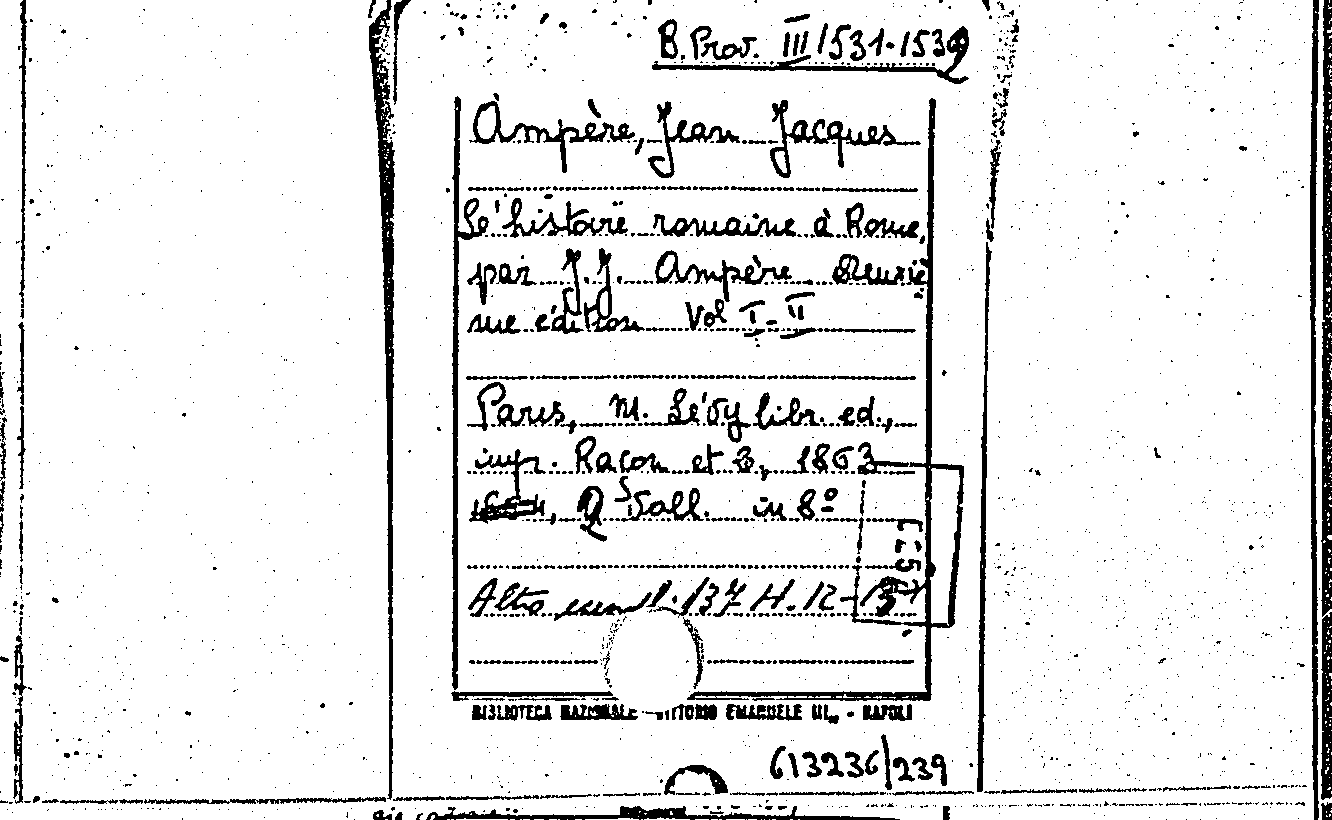 B. Prov. III 1531-1532
Ampère, Jean Jacques
Le' histoire romaine à Rome,
par J.J. Ampère. Deuxiè
me édition Vol I-II
Paris, M. Lévy libr. ed.,
impr. Raçon et C, 1863
2 Vall. in 8º
Altro esempl. 137 H. 12-13
BIBLIOTECA NAZIONALE VITTORIO EMANUELE III - NAPOLI
613236/239